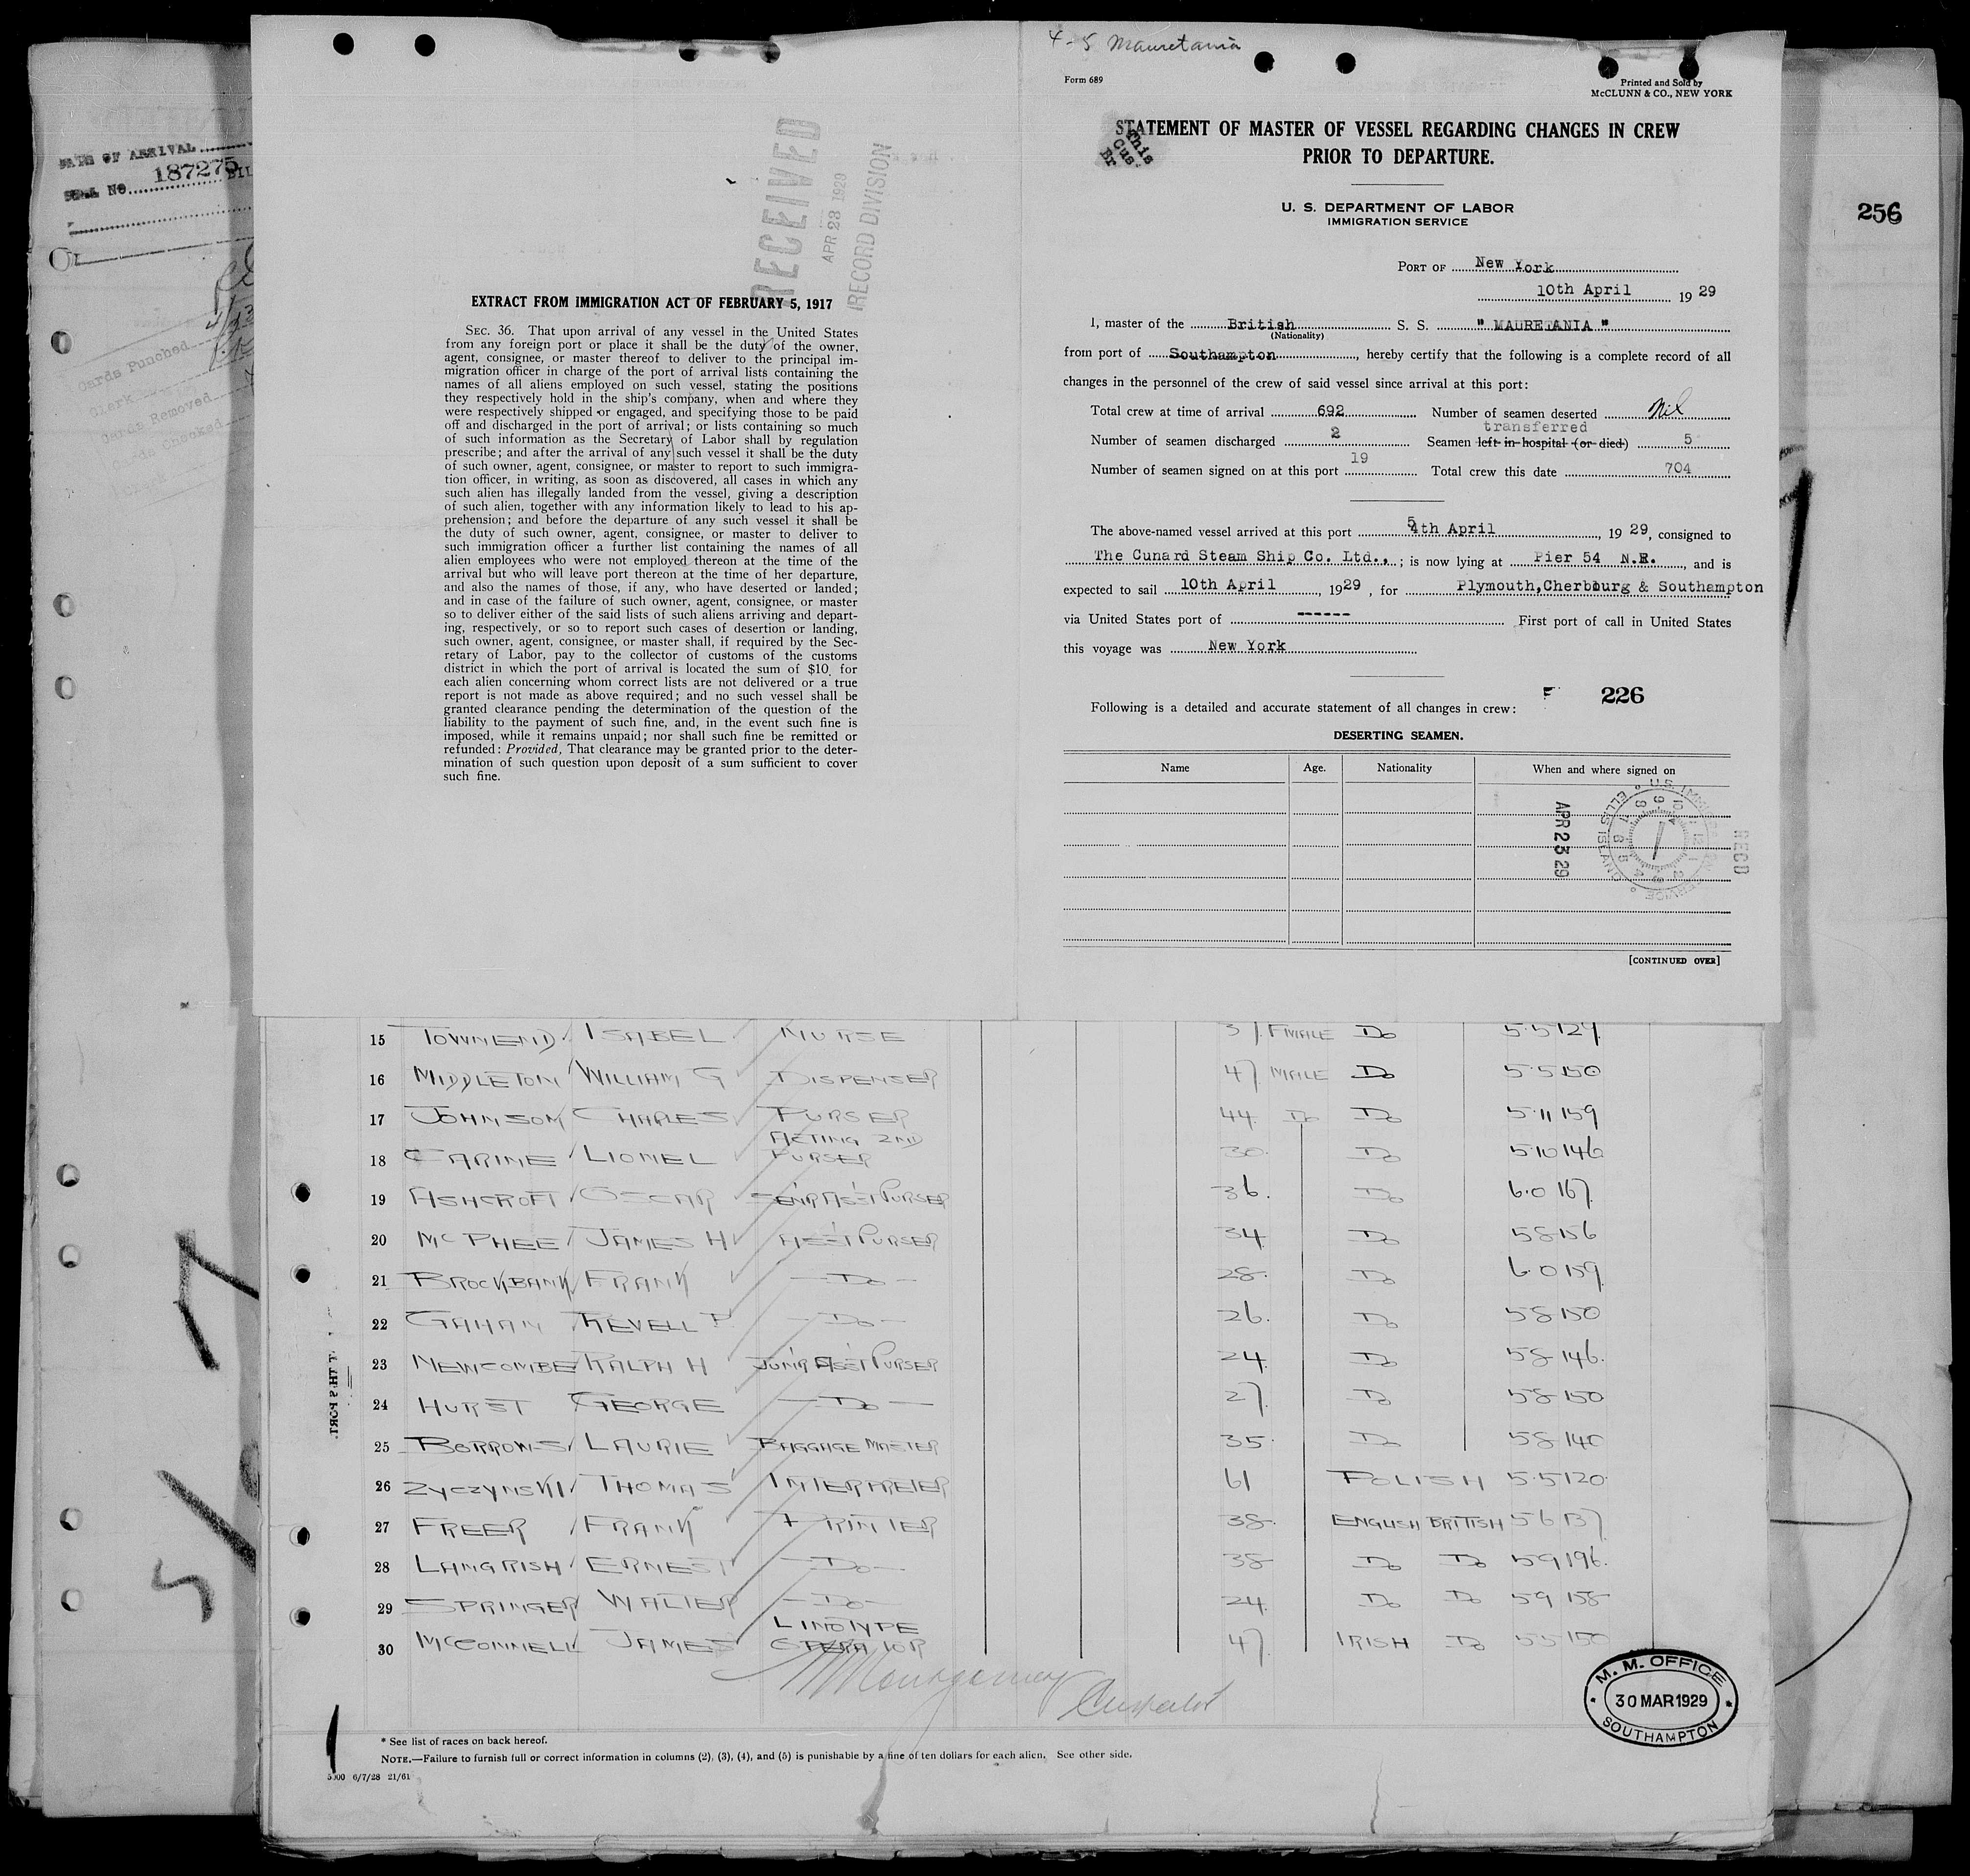 4-5 Mauretania
Form 689
Printed and Sold by
McCLUNN & CO., NEW YORK
STATEMENT OF MASTER OF VESSEL REGARDING CHANGES IN CREW
PRIOR TO DEPARTURE.
U. S. DEPARTMENT OF LABOR
IMMIGRATION SERVICE
PORT OF New York
10th April 1929
I, master of the British S. S. " MAURETANIA "
(Nationality)
from port of Southampton, hereby certify that the following is a complete record of all
changes in the personnel of the crew of said vessel since arrival at this port:
Total crew at time of arrival 692 Number of seamen deserted Nil
transferred
Number of seamen discharged 2 Seamen left in hospital (or died) 5
Number of seamen signed on at this port 19 Total crew this date 704
The above-named vessel arrived at this port 5th April, 1929, consigned to
The Cunard Steam Ship Co. Ltd.,; is now lying at Pier 54 N.R., and is
expected to sail 10th April, 1929, for Plymouth,Cherbourg & Southampton
via United States port of ------ First port of call in United States
this voyage was New York
226
Following is a detailed and accurate statement of all changes in crew:
DESERTING SEAMEN.
Name Age. Nationality When and where signed on
APR 23 29
RECD
U.S. IMMIGRATION SERVICE ELLIS ISLAND
[CONTINUED OVER]
256
RECEIVED
APR 23 1929
RECORD DIVISION
EXTRACT FROM IMMIGRATION ACT OF FEBRUARY 5, 1917
SEC. 36. That upon arrival of any vessel in the United States
from any foreign port or place it shall be the duty of the owner,
agent, consignee, or master thereof to deliver to the principal im-
migration officer in charge of the port of arrival lists containing the
names of all aliens employed on such vessel, stating the positions
they respectively hold in the ship's company, when and where they
were respectively shipped or engaged, and specifying those to be paid
off and discharged in the port of arrival; or lists containing so much
of such information as the Secretary of Labor shall by regulation
prescribe; and after the arrival of any such vessel it shall be the duty
of such owner, agent, consignee, or master to report to such immigra-
tion officer, in writing, as soon as discovered, all cases in which any
such alien has illegally landed from the vessel, giving a description
of such alien, together with any information likely to lead to his ap-
prehension; and before the departure of any such vessel it shall be
the duty of such owner, agent, consignee, or master to deliver to
such immigration officer a further list containing the names of all
alien employees who were not employed thereon at the time of the
arrival but who will leave port thereon at the time of her departure,
and also the names of those, if any, who have deserted or landed;
and in case of the failure of such owner, agent, consignee, or master
so to deliver either of the said lists of such aliens arriving and depart-
ing, respectively, or so to report such cases of desertion or landing,
such owner, agent, consignee, or master shall, if required by the Sec-
retary of Labor, pay to the collector of customs of the customs
district in which the port of arrival is located the sum of $10 for
each alien concerning whom correct lists are not delivered or a true
report is not made as above required; and no such vessel shall be
granted clearance pending the determination of the question of the
liability to the payment of such fine, and, in the event such fine is
imposed, while it remains unpaid; nor shall such fine be remitted or
refunded: Provided, That clearance may be granted prior to the deter-
mination of such question upon deposit of a sum sufficient to cover
such fine.
DATE OF ARRIVAL
SERIAL No. 187275
Cards Punched
Clerk
Cards Removed
Checked
Clerk
15 TOWNEND ISABEL NURSE 37 FMALE Do 5.5 124
16 MIDDLETON WILLIAM G DISPENSER 47 MALE Do 5.5 150
17 JOHNSON CHARLES PURSER 44 Do Do 5.11 159
18 CARINE LIONEL ACTING 2ND PURSER 30 Do 5.10 146
19 ASHCROFT OSCAR SENR ASST PURSER 36 Do 6.0 167
20 McPHEE JAMES H ASST PURSER 34 Do 5 8 156
21 BROCKBANK FRANK Do 28 Do 6.0 159
22 GAHAN REVELL P. Do 26 Do 5 8 150
23 NEWCOMBE RALPH H JUNR ASST PURSER 24 Do 5 8 146
24 HURST GEORGE Do 27 Do 5 8 150
25 BORROWS LAURIE BAGGAGE MASTER 35 Do 5 8 140
26 ZYCZYNSKI THOMAS INTERPRETER 61 POLISH 5.5 120
27 FREER FRANK PRINTER 38 ENGLISH BRITISH 5 6 137
28 LANGRISH ERNEST Do 38 Do Do 5 9 196
29 SPRINGER WALTER Do 24 Do Do 5 9 158
30 McCONNELL JAMES LINOTYPE OPERATOR 47 IRISH Do 5 5 150
Montgomery
M. M. OFFICE
30 MAR 1929
SOUTHAMPTON
* See list of races on back hereof.
NOTE.—Failure to furnish full or correct information in columns (2), (3), (4), and (5) is punishable by a fine of ten dollars for each alien. See other side.
5000 6/7/28 21/61